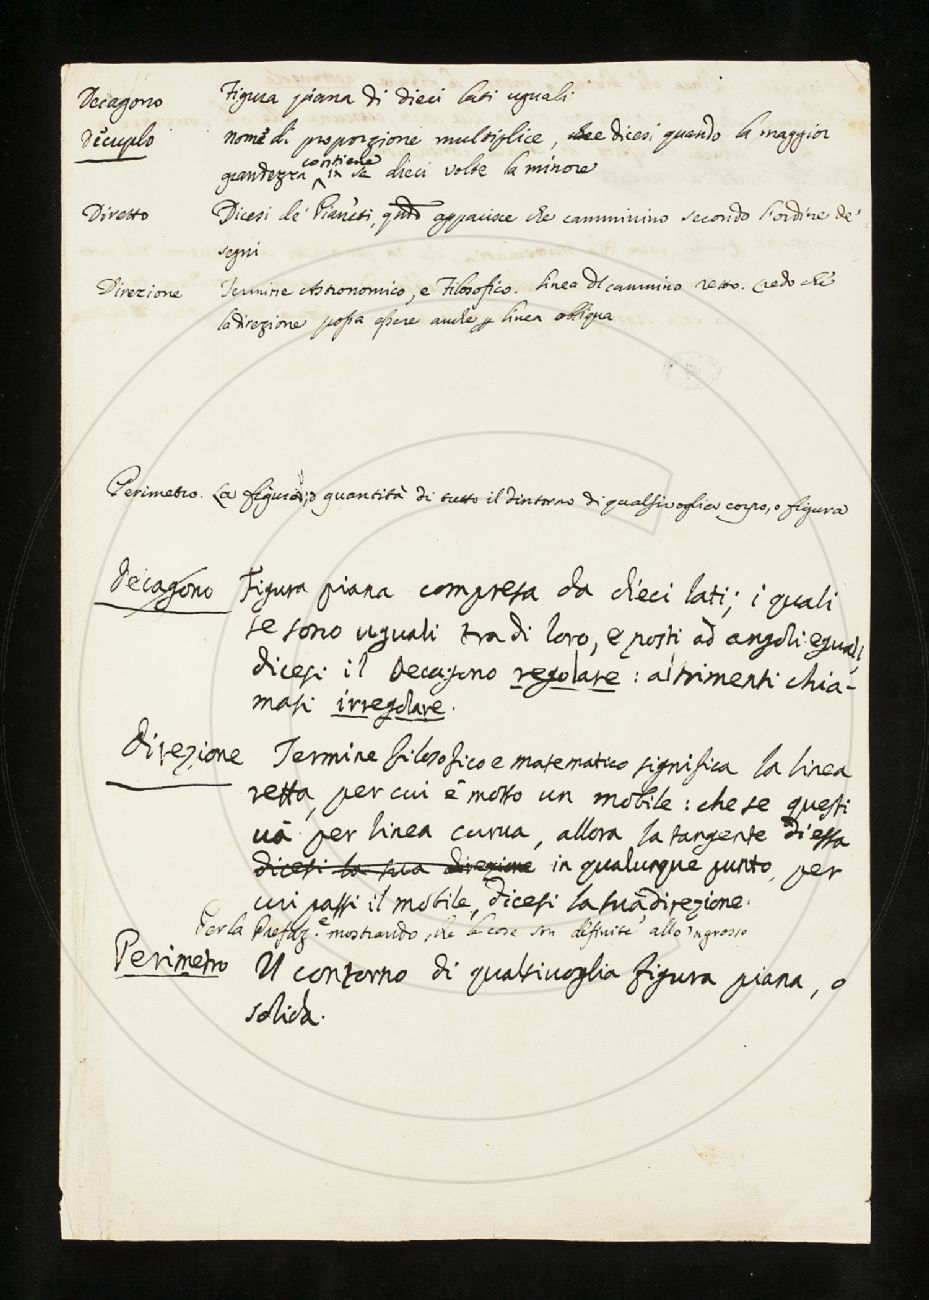 Decagono Figura piana di dieci lati uguali
Decuplo nome di proporzione multiplice, che dicesi quando la maggior
grandezza contiene in se dieci volte la minore
Diretto Dicesi de' Pianeti, qndo apparisce che camminino secondo l'ordine de'
segni
Direzione Termine Astronomico, e Filosofico. linea di cammino retto. Credo che
la direzione possa essere anche p linea obliqua
Perimetro. La figura, o quantità di tutto il dintorno di qualsivoglia corpo, o figura
Decagono Figura piana compresa da dieci lati; i quali
se sono uguali tra di loro, e posti ad angoli eguali,
dicesi il Decagono regolare: altrimenti chia-
masi irregolare.
Direzione Termine filosofico e matematico significa la linea
retta, per cui è mosso un mobile: che se questi
uà per linea curua, allora la tangente di essa
dicesi la sua direzione in qualunque punto, per
cui passi il mobile, dicesi la sua direzione.
Per la Prefaz.e mostrando, che le cose son definite all'ingrosso
Perimetro Il contorno di qualsiuoglia figura piana, o
solida.